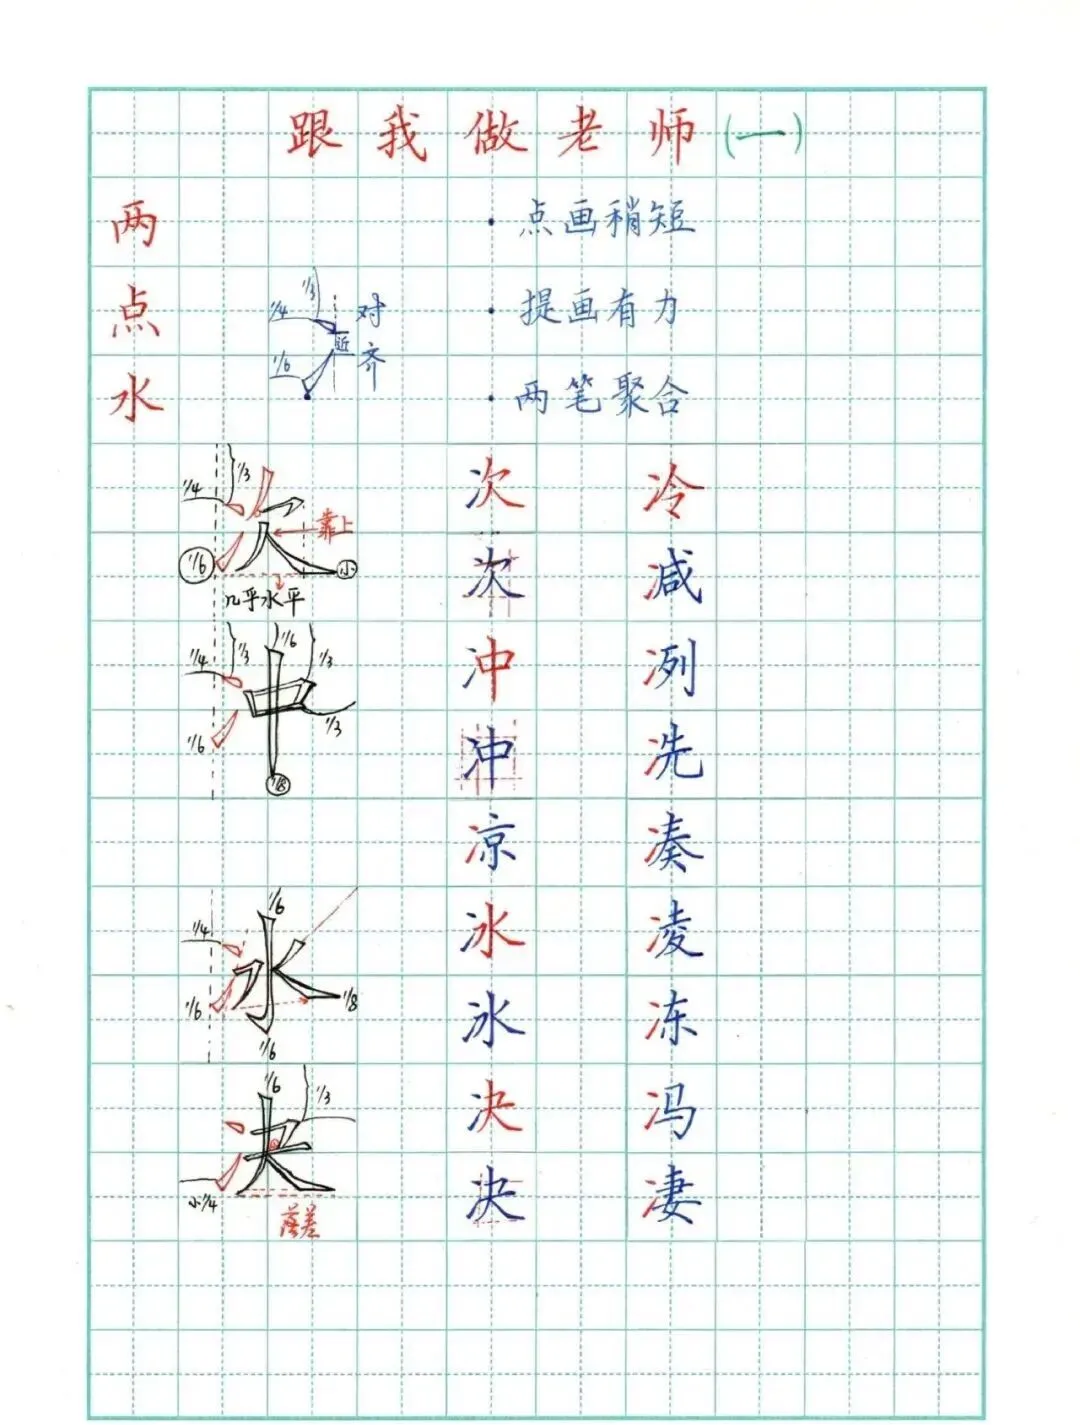 跟我做老师(一)
两点水
·点画稍短
·提画有力
·两笔聚合
1/4 1/3 对齐
近
1/6
1/4 1/3
次 冷
靠上
1/6 小
次 减
几乎水平
1/4 1/3 1/6 1/3
冲 冽
1/6 1/3
1/8
冲 冼
凉 凑
1/6
1/4
冰 凌
1/6 1/8
冰 冻
1/6
1/6 1/3
决 冯
小1/4
决 凄
落差